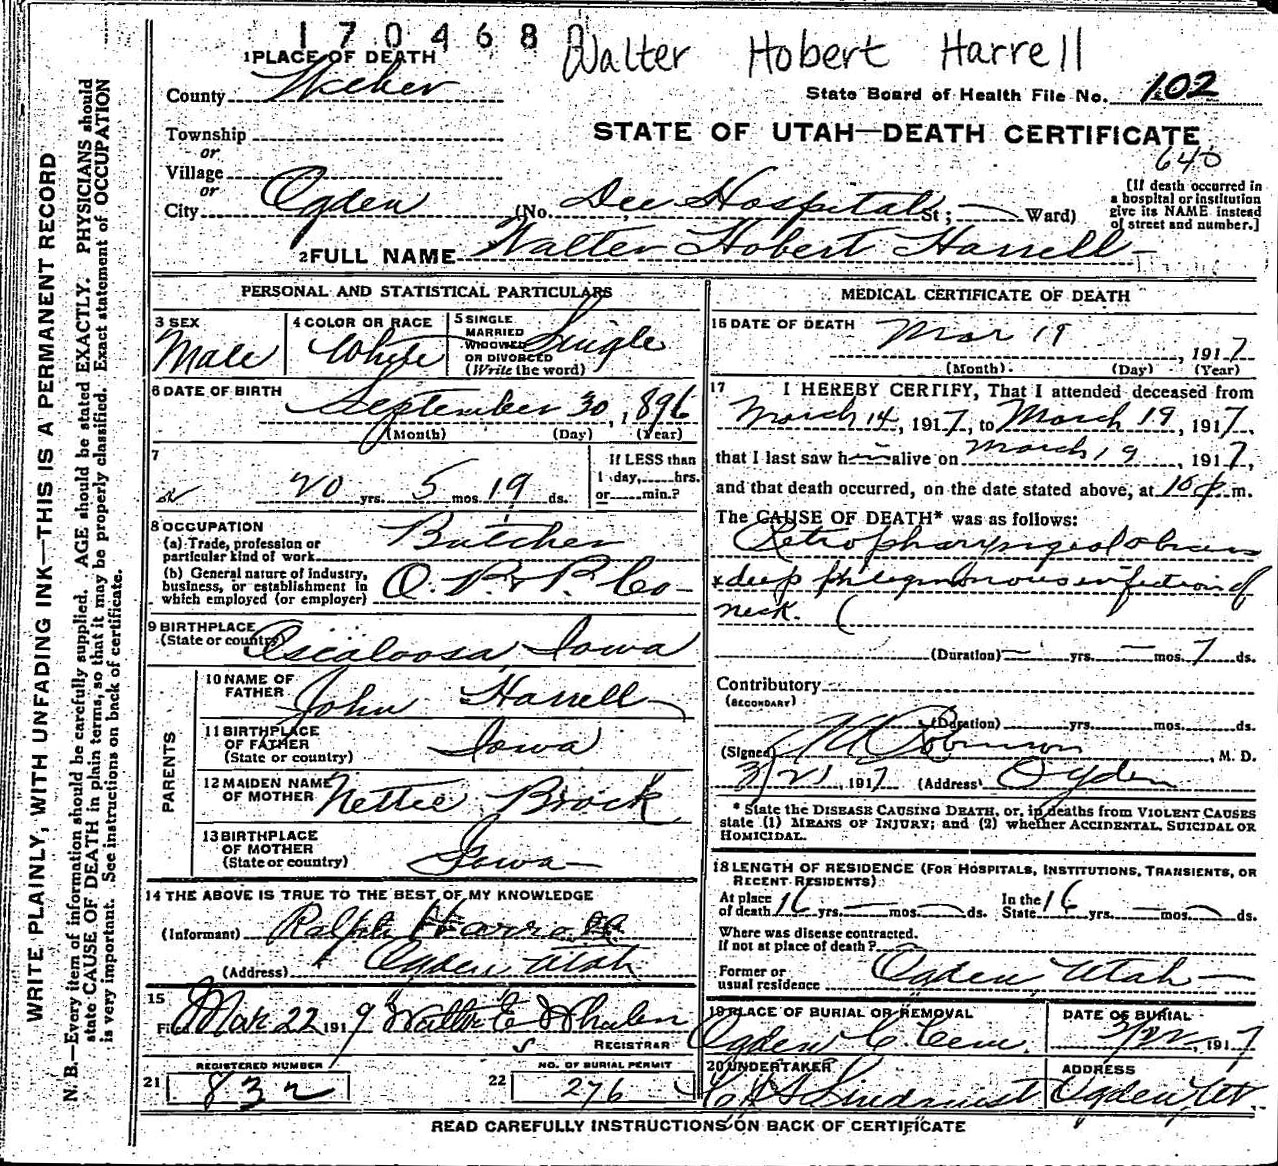 170468
Walter Hobert Harrell
1 PLACE OF DEATH
County Weber
State Board of Health File No. 102
Township
or
STATE OF UTAH—DEATH CERTIFICATE
640
Village
or
City Ogden (No. Dee Hospital St; Ward)
[If death occurred in
a hospital or institution
give its NAME instead
of street and number.]
2 FULL NAME Walter Hobert Harrell
PERSONAL AND STATISTICAL PARTICULARS
3 SEX
Male
4 COLOR OR RACE
White
5 SINGLE
MARRIED
WIDOWED
OR DIVORCED
(Write the word)
Single
6 DATE OF BIRTH
September 30, 1896
(Month) (Day) (Year)
7
20 yrs. 5 mos. 19 ds.
If LESS than
1 day, hrs.
or min.?
8 OCCUPATION
(a) Trade, profession or
particular kind of work Butcher
(b) General nature of industry,
business, or establishment in
which employed (or employer) O. P. & P. Co
9 BIRTHPLACE
(State or country) Oscaloosa, Iowa
PARENTS
10 NAME OF
FATHER John Harrell
11 BIRTHPLACE
OF FATHER
(State or country) Iowa
12 MAIDEN NAME
OF MOTHER Nettie Brock
13 BIRTHPLACE
OF MOTHER
(State or country) Iowa
14 THE ABOVE IS TRUE TO THE BEST OF MY KNOWLEDGE
(Informant) Ralph
(Address) Ogden Utah
15
Filed Mar 22 1919 Walter E Whalen
REGISTRAR
REGISTERED NUMBER
21 832
NO. OF BURIAL PERMIT
22 276
MEDICAL CERTIFICATE OF DEATH
16 DATE OF DEATH
Mar 19, 1917
(Month) (Day) (Year)
17 I HEREBY CERTIFY, That I attended deceased from
March 14, 1917, to March 19, 1917,
that I last saw h alive on March 19, 1917,
and that death occurred, on the date stated above, at 10 p m.
The CAUSE OF DEATH* was as follows:
Retropharyngeal
deep phlegmonous infection of
neck.
(Duration) — yrs. — mos. 7 ds.
Contributory
(SECONDARY)
(Duration) yrs. mos. ds.
(Signed) Robinson, M. D.
3/21, 1917 (Address) Ogden
* State the DISEASE CAUSING DEATH, or, in deaths from VIOLENT CAUSES
state (1) MEANS OF INJURY; and (2) whether ACCIDENTAL, SUICIDAL OR
HOMICIDAL.
18 LENGTH OF RESIDENCE (FOR HOSPITALS, INSTITUTIONS, TRANSIENTS, OR
RECENT RESIDENTS)
At place
of death 16 yrs. — mos. — ds.
In the
State 16 yrs. — mos. — ds.
Where was disease contracted.
If not at place of death?
Former or
usual residence Ogden Utah
19 PLACE OF BURIAL OR REMOVAL
Ogden C. Cem.
DATE OF BURIAL
3/22, 1917
20 UNDERTAKER
ADDRESS
Ogden, Ut
READ CAREFULLY INSTRUCTIONS ON BACK OF CERTIFICATE
WRITE PLAINLY, WITH UNFADING INK—THIS IS A PERMANENT RECORD
N. B.—Every item of information should be carefully supplied. AGE should be stated EXACTLY. PHYSICIANS should
state CAUSE OF DEATH in plain terms, so that it may be properly classified. Exact statement of OCCUPATION
is very important. See instructions on back of certificate.